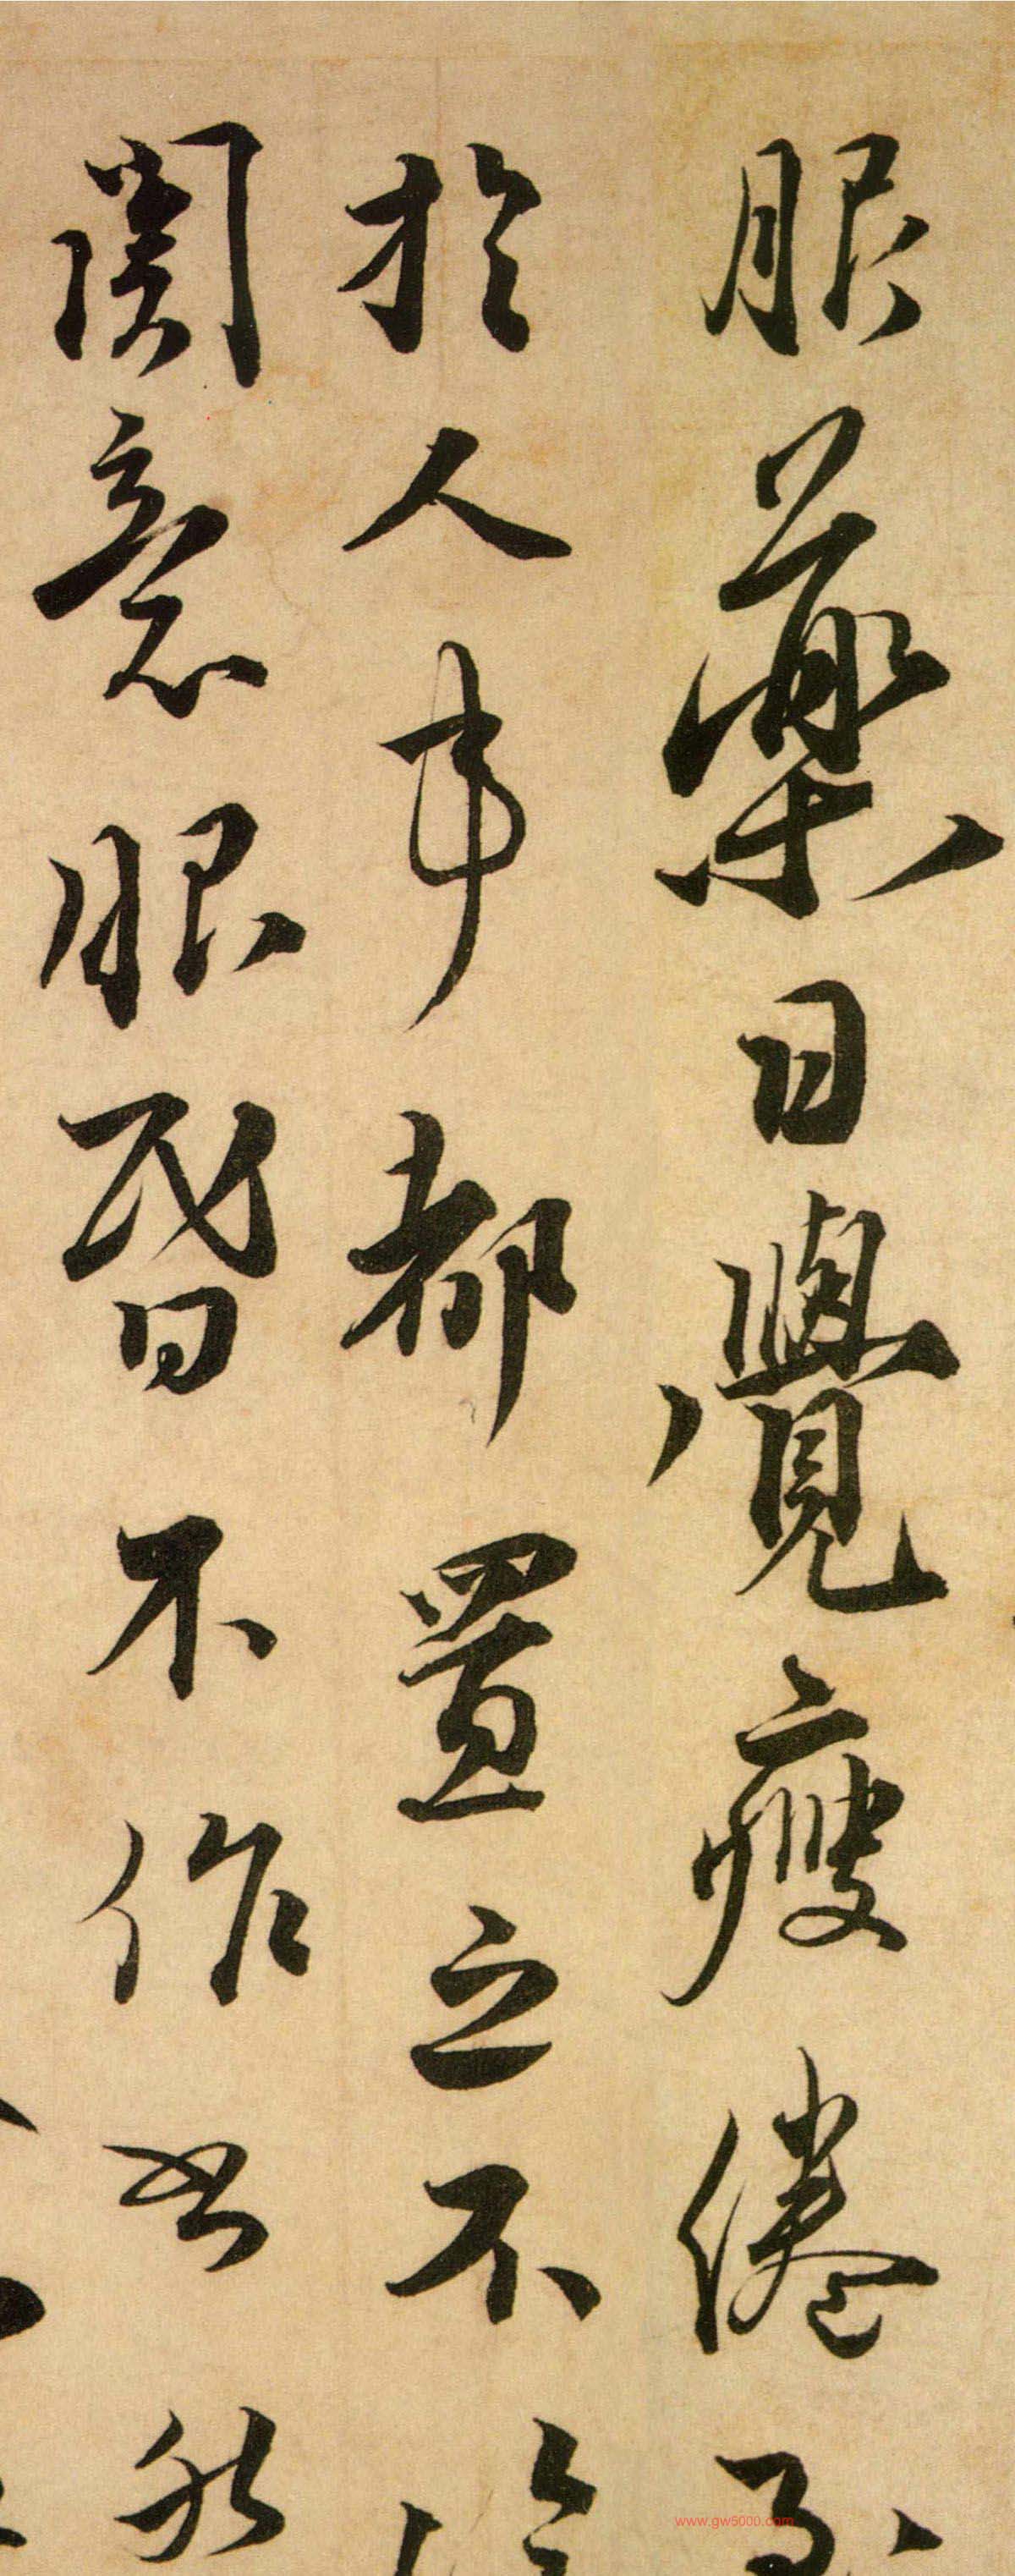 服藥日覺瘦倦至
於人事都置之不
關意眼昏不作書
www.gw5000.com